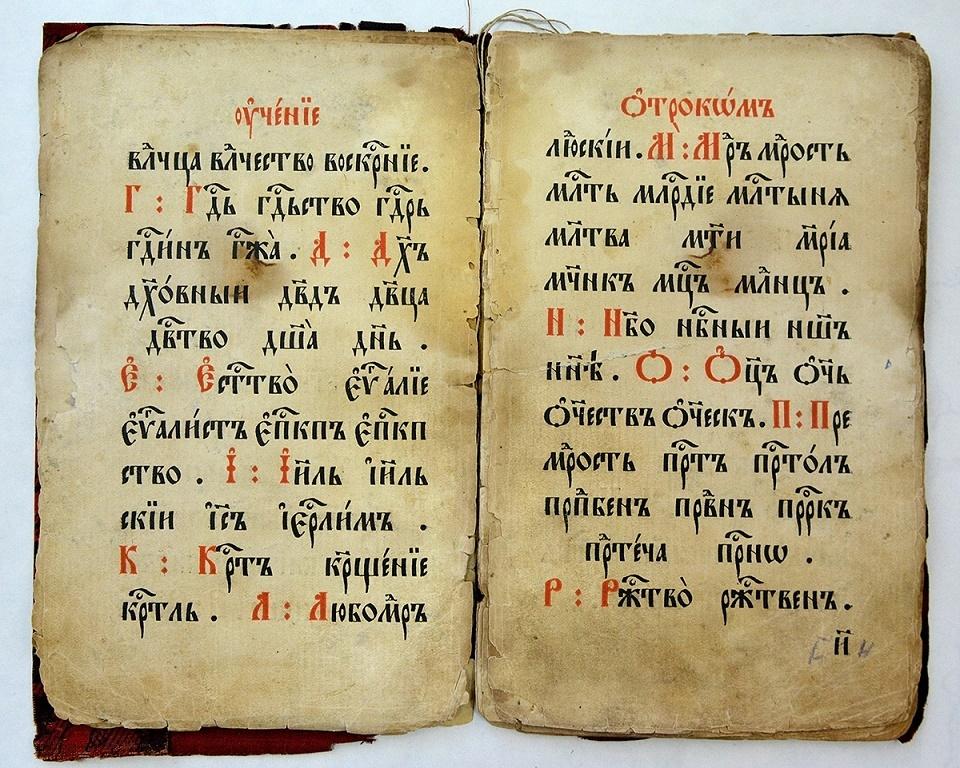 ᲂу҆че́нїе
вл҃чца вл҃чество воскр҇нїе.
Г : Гд҇ь гд҇ьство гд҇рь
гд҇и́нъ гж҇а̀ . Д : Дх҃ъ
дх҃о́вныи дв҃дъ дв҃ца
дв҇тво дш҃а̀ дн҃ь .
Є҆ : Є҆ст҇тво̀ є҆ѵ҇а́лїе
є҆ѵ҇али́стъ є҆п҇кпъ є҆п҇кп
ство . І҆ : І҆и҃ль і҆и҃ль
скїи і҆с҃ъ і҆єр҇ли́мъ .
К : Кр҇тъ кр҃ще́нїе
кр҇тль . Л : Любомⷣръ
Ѻ҆трокѡ́мъ
лю҇скі́и. М : Мⷣръ мⷣрость
мл҇ть млр҇дїе мл҇тыня
мл҃тва мт҃и мр҃і́а
мч҃нкъ мц҇ъ мл҇нцъ .
Н : Нб҃о нб҇ныи нш҃ъ
нн҃ѣ . Ѻ҆ : Ѻ҆ц҃ъ ѻ҆ч҃ь
ѻ҆ч҃ествъ ѻ҆ч҃ескъ. П : Пре
мⷣрость пр҇тъ пр҇то́лъ
прп҇бенъ прв҇нъ прⷪ҇ркъ
прⷣте́ча пр҇нѡ .
Р : Рж҇тво̀ рж҇твенъ.
и҃